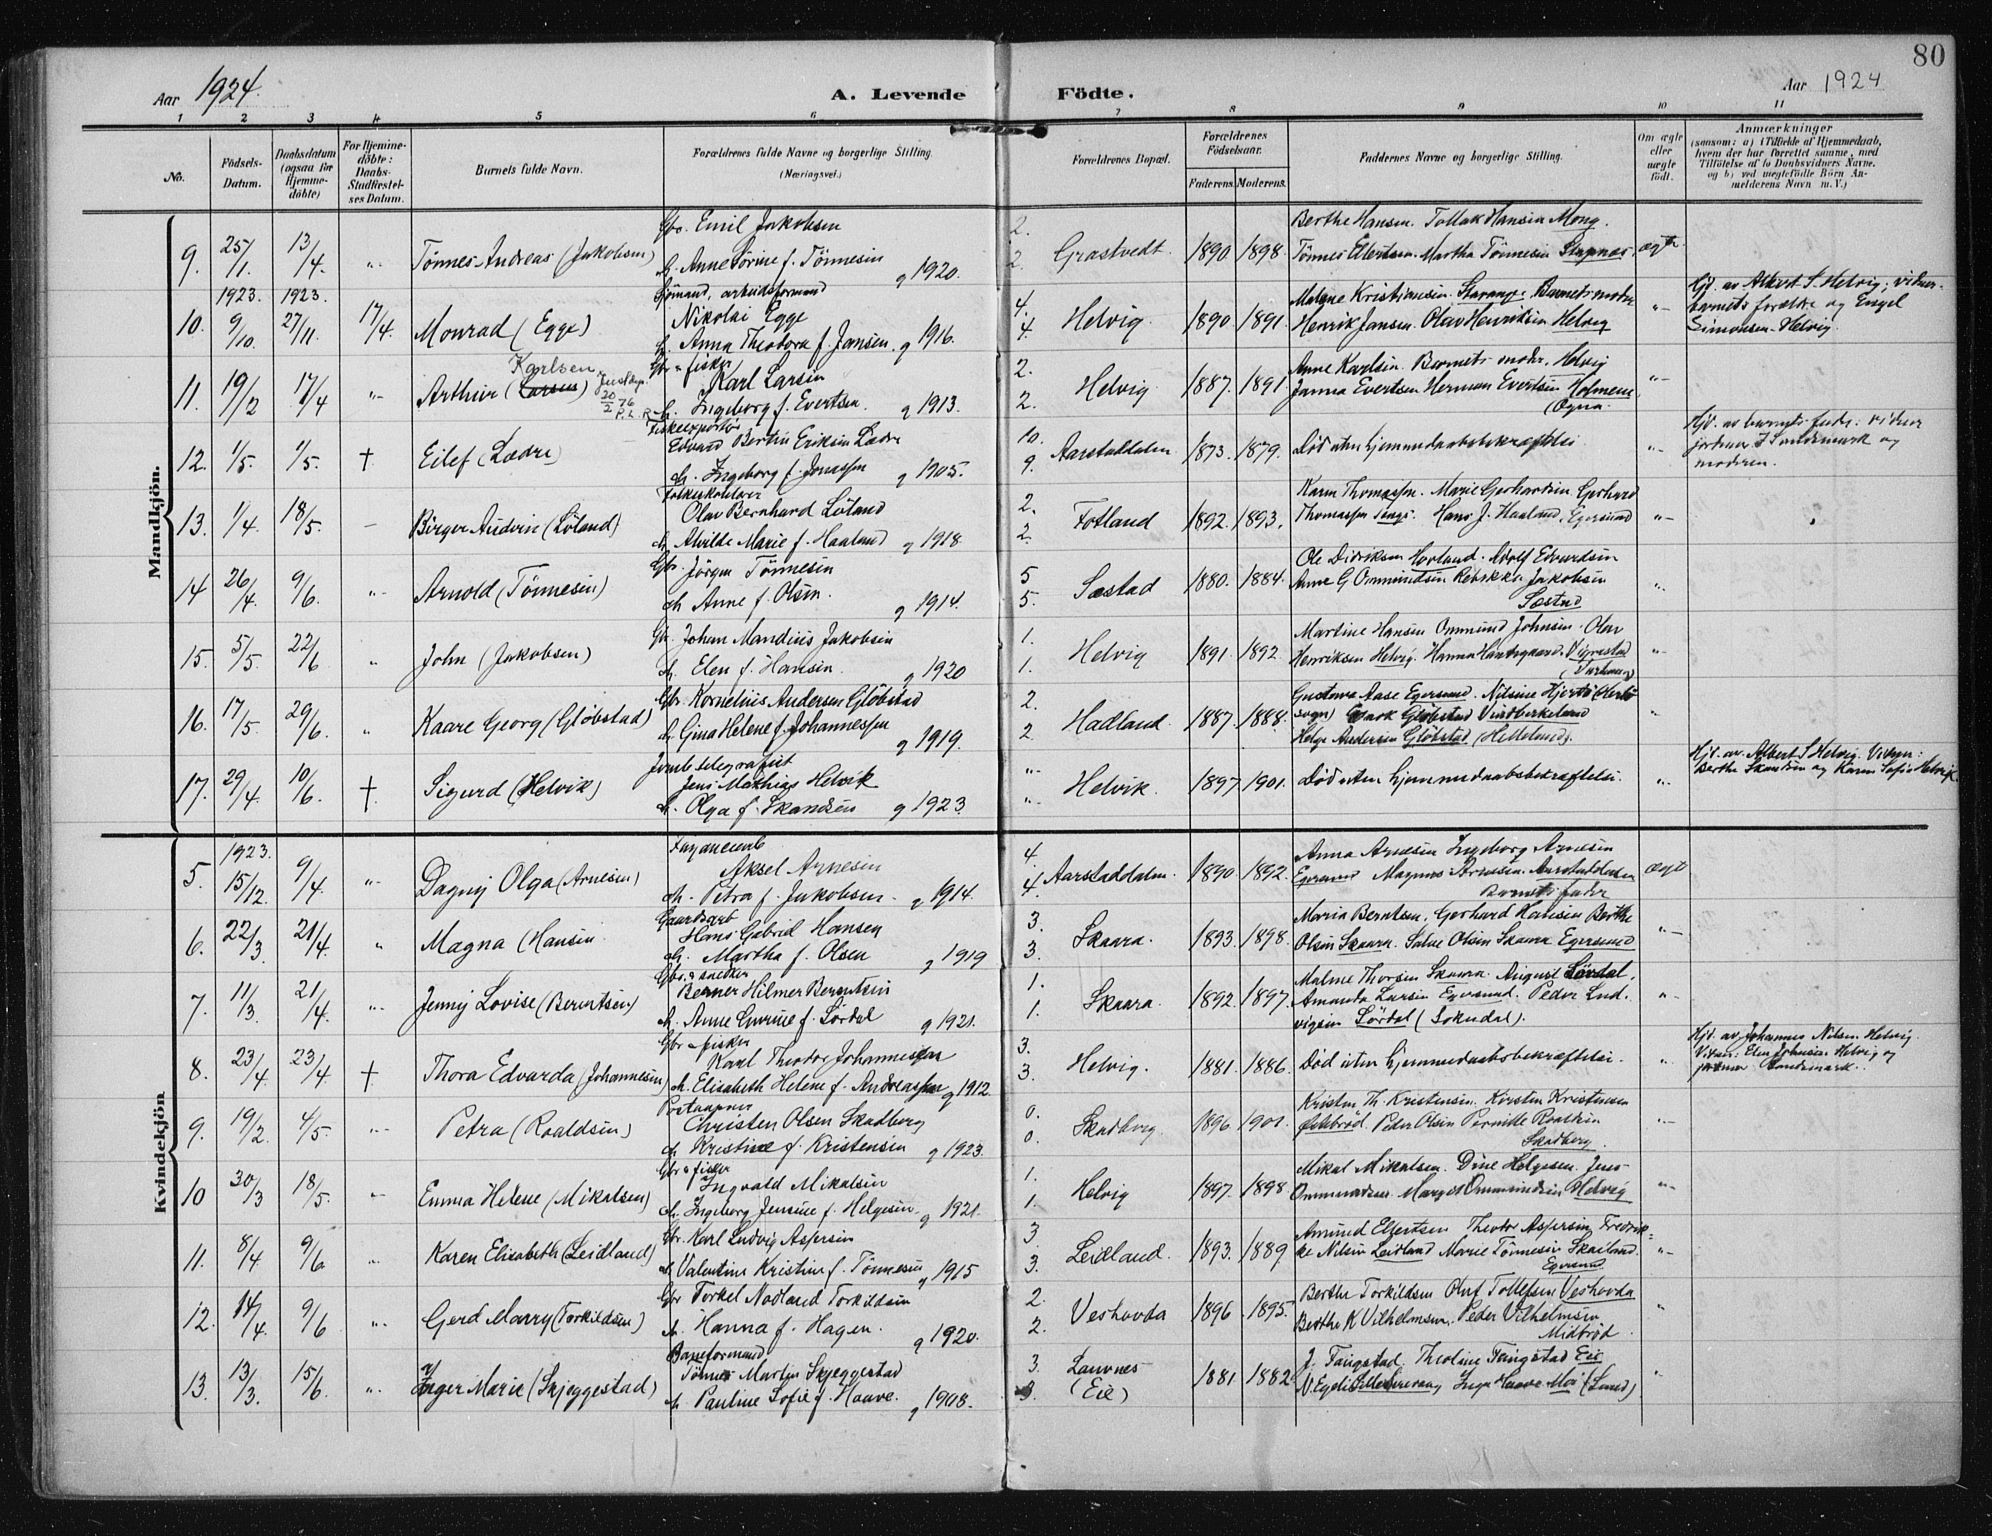 80
Aar 1924.
A. Levende Födte.
Aar 1924
1 2 3 4 5 6 7 8 9 10 11
No.
Födsels-
Datum.
Daabsdatum
(ogsaa for
Hjemme-
döbte)
For Hjemme-
döbte:
Daabs-
Stadfestel-
ses Datum.
Barnets fulde Navn.
Forældrenes fulde Navne og borgerlige Stilling.
(Næringsvei.)
Forældrenes Bopæl.
Forældrenes
Födselsaar.
Faderens. Moderens.
Faddernes Navne og borgerlige Stilling.
Om ægte
eller
uægte
födt.
Anmærkninger
(saasom: a) i Tilfælde af Hjemmedaab,
hvem der har forrettet samme, med
Tilföielse af to Daabsvidners Navne,
og b) ved uegtefödte Börn An-
melderens Navn m. V.)
Mandkjön.
9. 25/1. 13/4. „ Tönnes Andreas (Jakobsen)
Gbr. Emil Jakobsen
h. Anne Sörine f. Tönnesen g 1920.
2. 2. Grastvedt. 1890 1898.
Berthe Hansen. Tollak Hansen Mong.
Tönnes Eilertsen. Martha Tönnesen Stapnes,
ægte.
10. 1923. 9/10. 1923. 27/11. 17/4. Monrad (Egge)
Sjömand, arbeidsformand
Nikolai Egge
h. Anna Theodora f. Jansen. g 1916.
4. 4. Helvig. 1890 1891.
Malene Kristiansen. Stavang. Barnets moder
Henrik Jansen. Olav Henriksen Helvig
„
Hjd. av Albert S. Helvig; vidner
barnets forældre og Engel
Simonsen Helvig.
11. 19/2 17/4 „ Arthur (Larsen) Karlsen
20/2 76
P. L. R
Gbr. & fisker
Karl Larsen
h. Ingeborg f. Evertsen. g 1913.
2. 2. Helvig 1887. 1891.
Anne Karlsen. Barnets moder. Helvig
Janna Evertsen Herman Evertsen Holmene
(Ogna.
„
12. 1/5. 1/5. † Eilef (Lædre)
Fiskeexportör
Edvard Bertin Eriksen Lædre
h. Ingeborg f. Jonassen g 1905.
10. 9. Aarstaddalen 1873. 1879.
Död uten hjemmedaabsbekræftelse
„
Hjd. av barnets fader. vidner
jordmor I Sandsmark og
moderen.
13. 1/4. 18/5. – Birger Audvin (Löland)
Folkeskolelærer
Olav Bernhard Löland
h. Alvilde Marie f. Haaland g 1918.
2. 2. Fotland 1892. 1893.
Karen Thomassen. Marie Gerhardsen Gerhard
Thomassen Tengs. Hans J. Haaland. Egersund
„
14 26/4 9/6. „ Arnold (Tönnesen)
Gbr. Jörgen Tönnesen
h. Anne f. Olsen. g 1914.
5 5. Sæstad 1880. 1884.
Ole Didriksen Hovland. Adolf Edvardsen
Anne G Ommundsen Rebekka Jakobsen
Sæstad
„
15. 5/5. 22/6 „ John (Jakobsen)
Gbr. Johan Mandius Jakobsen
h. Elen f. Hansen. g 1920
1. 1. Helvig 1891. 1892.
Martine Hansen Ommund Johnsen. Olav
Henriksen Helvig. Hanna Vigrestad
(Varhaug)
„
16. 17/5. 29/6. „ Kaare Georg (Glöbstad)
Gbr. Kornelius Andersen Glöbstad
h. Gina Helene f. Johannessen g 1919.
2. 2. Hadland. 1887. 1888.
Gustava Aase Egersund. Nilsine Hjertö
sogn) Glöbstad
Helge Andersen Glöbstad (Helleland).
„
17. 29/4. 10/6. † Sigurd (Helvik)
Jernb. telegrafist
Jens Mathias Helvik
h. Olga f. Skandsen g 1923.
„ „ Helvik. 1897 1901.
Död uten hjemmedaabsbekræftelse.
„
Hjd. av Albert S Helvig. Vidner:
Berthe Skandsen og Karen Sofie Helvik.
Kvindekjön
5. 1923. 15/12. 9/4. „ Dagny Olga (Arnesen)
Fayancearb
Aksel Arnesen
h. Petra f. Jakobsen. g 1914.
4. 4. Aarstaddalen. 1890 1892.
Anna Arnesen Ingeborg Arnesen
Egersund Magnus Arnesen. Aarstaddalen
Barnets fader
ægte
6. 22/3. 21/4. „ Magna (Hansen.
Gaardsarb
Hans Gabriel Hansen
h. Martha f. Olsen g 1919
3. 3. Skaara. 1893. 1898.
Maria Berntsen. Gerhard Hansen Berthe
Olsen Skaara. Salve Olsen Skaara Egersund
„
7. 11/3. 21/4. „ Jenny Lovise (Berntsen)
Gbr. & snedker
Berner Hilmer Berntsen
h. Anne Gurine f. Lördal g 1921.
1. 1. Skaara. 1892. 1897.
Malene Thorsen Skaara. August Lördal.
Amanda Larsen Egersund. Peder Lud.
vigsen Lördal (Sokndal).
„
8. 23/4. 23/4 † Thora Edvarda (Johannesen)
Gbr & fisker
Karl Theodor Johannessen
h. Elisabeth Helene f. Andreassen g 1912.
3. 3. Helvig. 1881. 1886.
Död uten hjemmedaabsbekræftelse.
„
Hjd. av Johannes Nilsen Helvig.
Vidner: Elen Johnsen Helvig og
jordmor Sandsmark.
9. 19/2. 4/5. „ Petra (Roaldsen)
Postaapner
Christen Olsen Skadberg
h. Kristine f. Kristensen g 1923.
0. 0. Skadberg 1896 1901.
Kristen Th. Kristensen. Kirsten Kristensen
Peder Olsen Pernille
Skadberg.
„
10 30/3 18/5. „ Emma Helene (Mikalsen)
Gbr & fisker
Ingvald Mikalsen
h. Ingeborg Jensine f. Helgesen. g 1921.
1. 1. Helvig 1897. 1898.
Mikal Mikalsen. Dine Helgesen. Jens
Ommundsen. Margit Ommundsen Helvig
„
11. 8/4 9/6 „ Karen Elisabeth (Leidland)
Gbr. Karl Ludvig Aspersen
h. Valentine Kristine f. Tönnesen g 1915
3. 3. Leidland. 1893. 1889.
Amund Eilertsen Theodor Aspersen Fredrik-
ke Nilsen Leidland Marie Tönnesen Skailand.
Egersund
„
12. 14/4. 9/6 „ Gerd Marry (Torkildsen)
Gbr Torkel Nodland Torkildsen
h. Hanna f. Hagen. g 1920.
2. 2. Veshovda 1896. 1895.
Berthe Torkildsen Oluf Tollefsen Veshovda
Berthe K Vilhelmsen. Peder Vilhelmsen
Midbröd.
„
13. 13/3. 15/6. „ Inger Marie (Skjeggestad)
Baneformand
Tönnes Martin Skjeggestad
h. Pauline Sofie f. Haave. g 1908.
3. 3. Launes
(Eie)
1881 1882
J. Tengstad. Theoline Tengstad Eie
Inga Haave Moi (Lund)
„